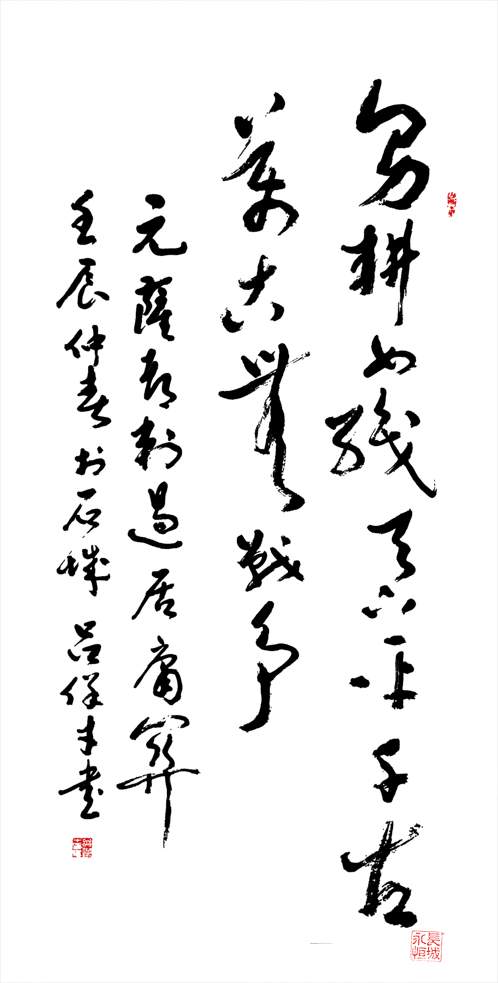 男耕女織天下平千古
萬古無戰爭
元薩都剌過居庸關
壬辰仲春於石城 呂書
長城永恒